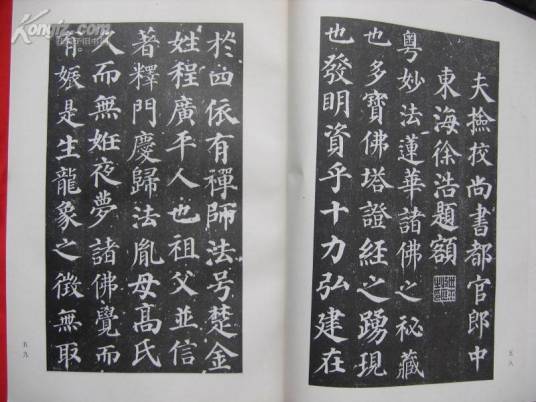 夫撿挍尚書都官郎中
東海徐浩題額
粤妙法蓮華諸佛之秘藏
也多寶佛塔證經之踴現
也發明資乎十力弘建在
五八
於四依有禪師法号楚金
姓程廣平人也祖父並信
著釋門慶歸法胤母高氏
久而無姙夜夢諸佛覺而
有娠是生龍象之徵無取
五九
Kongfz.com